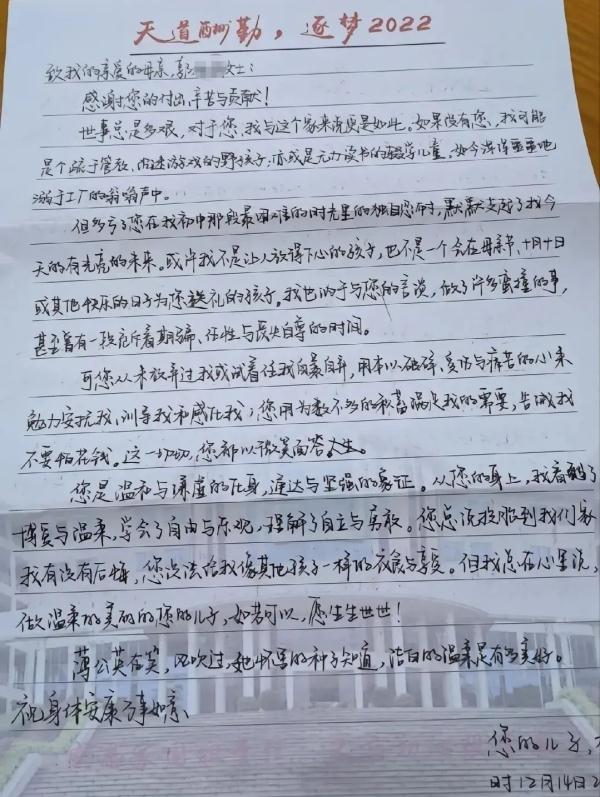 天道酬勤，逐梦2022
致我的亲爱的母亲，郭 女士：
感谢您的付出辛苦与贡献！
世事总是多艰，对于您、我与这个家来说更是如此。如果没有您，我可能
是个疏于管教、内迷游戏的野孩子；亦或是无力读书的辍学儿童，如今浑浑噩噩地
溺于工厂的嗡嗡声中。
但多亏了您在我初中那段最困难的时光里的独自忍耐，默默支撑了我今
天的有光亮的未来。或许我不是让人放得下心的孩子，也不是一个会在母亲节、十月十日
或其他快乐的日子为您送礼的孩子。我也怯于与您的言谈，做了许多蛮撞的事，
甚至曾有一段充斥着期骗、任性与丧失自尊的时间。
可您从未放弃过我或试着任我自暴自弃，用本以破碎、受伤与痛苦的心来
勉力安抚我、训导我和感化我；您用为数不多的积蓄满足我的需要，告诫我
不要怕花钱。这一切切，您都以微笑面答人生。
您是温和与谦虚的化身，通达与坚强的象征。从您的身上，我看到了
博爱与温柔，学会了自由与乐观，理解了自立与勇敢。您总说投胎到我们家
我有没有后悔，您没法给我像其他孩子一样的衣食与享受。但我总在心里说，
做温柔的美丽的您的儿子，如若可以，愿生生世世！
蒲公英在笑，风吹过，她怀里的种子知道，洁白的温柔是有多美好。
祝身体安康万事如意、
您的儿子，
时12月14日2